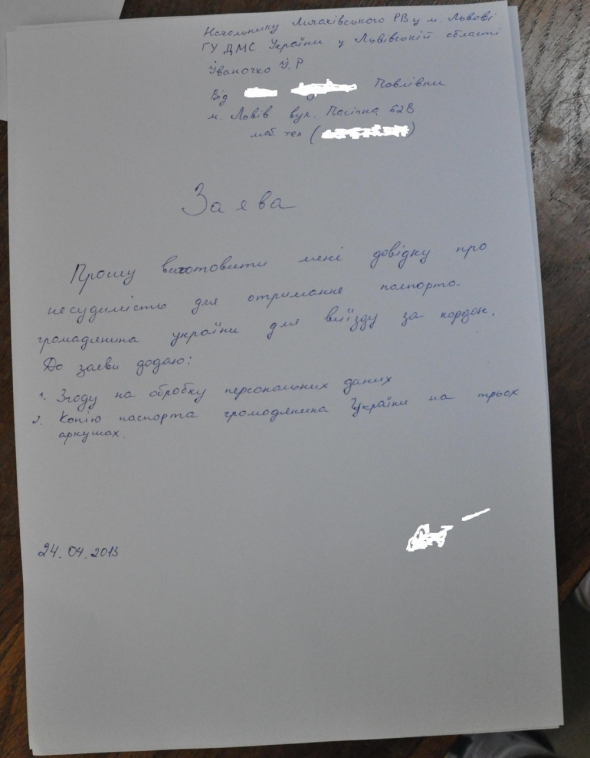 Начальнику Личаківського РВ у м. Львові
ГУ ДМС України у Львівській області
Іваночко У.Р
Від Павлівни
м. Львів вул. Пасічна 62В
моб. тел (
)
Заява
Прошу виготовити мені довідку про
несудимість для отримання паспорта
громадянина україни для виїзду за кордон.
До заяви додаю:
1. Згоду на обробку персональних даних
2. Копію паспорта громодянина України на трьох
аркушах.
24.04.2013